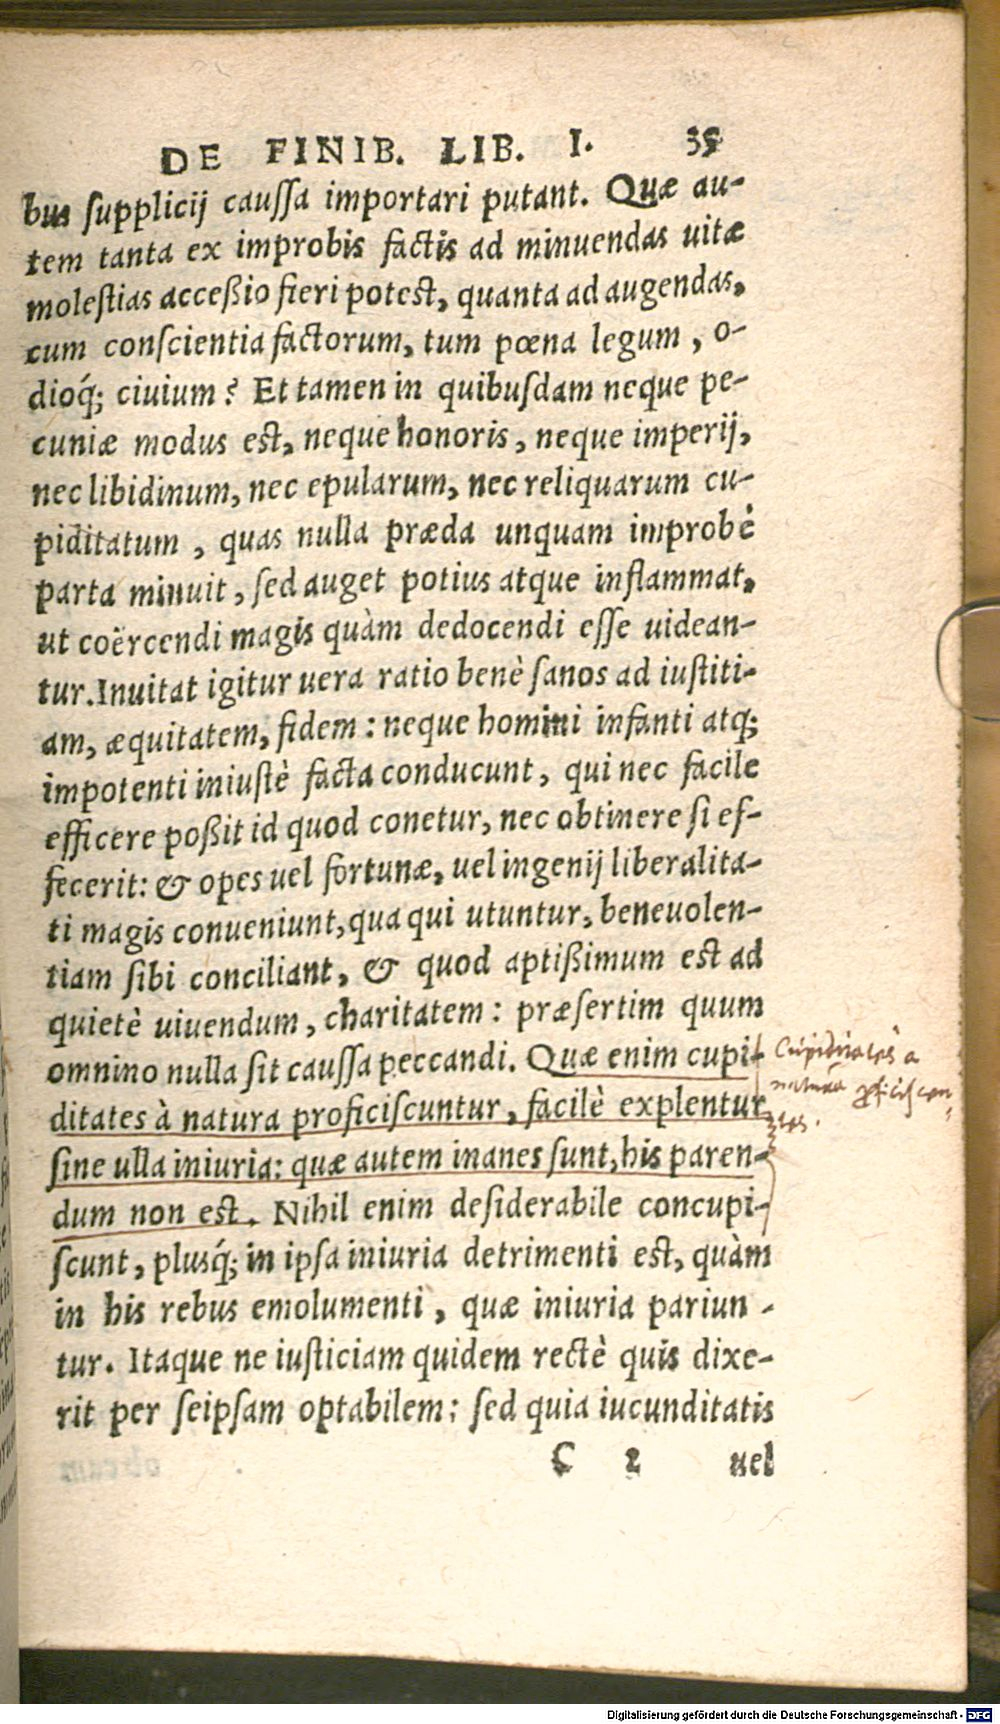 DE FINIB. LIB. I. 35
bus supplicij caussa importari putant. Quæ au-
tem tanta ex improbis factis ad minuendas uitæ
molestias acceßio fieri potest, quanta ad augendas,
cum conscientia factorum, tum pœna legum, o-
dioq́; ciuium? Et tamen in quibusdam neque pe-
cuniæ modus est, neque honoris, neque imperij,
nec libidinum, nec epularum, nec reliquarum cu-
piditatum, quas nulla præda unquam improbè
parta minuit, sed auget potius atque inflammat,
ut coërcendi magis quàm dedocendi esse uidean-
tur. Inuitat igitur uera ratio benè sanos ad iustiti-
am, æquitatem, fidem: neque homini infanti atq;
impotenti iniustè facta conducunt, qui nec facile
efficere poßit id quod conetur, nec obtinere si ef-
fecerit: & opes uel fortunæ, uel ingenij liberalita-
ti magis conueniunt, qua qui utuntur, beneuolen-
tiam sibi conciliant, & quod aptißimum est ad
quietè uiuendum, charitatem: præsertim quum
omnino nulla sit caussa peccandi. Quæ enim cupi-
ditates à natura proficiscuntur, facilè explentur
sine ulla iniuria: quæ autem inanes sunt, his paren-
dum non est. Nihil enim desiderabile concupi-
scunt, plusq́; in ipsa iniuria detrimenti est, quàm
in his rebus emolumenti, quæ iniuria pariun-
tur. Itaque ne iusticiam quidem rectè quis dixe-
rit per seipsam optabilem: sed quia iucunditatis
C 2 uel
Cupiditates a
natura
tes.
Digitalisierung gefördert durch die Deutsche Forschungsgemeinschaft - DFG